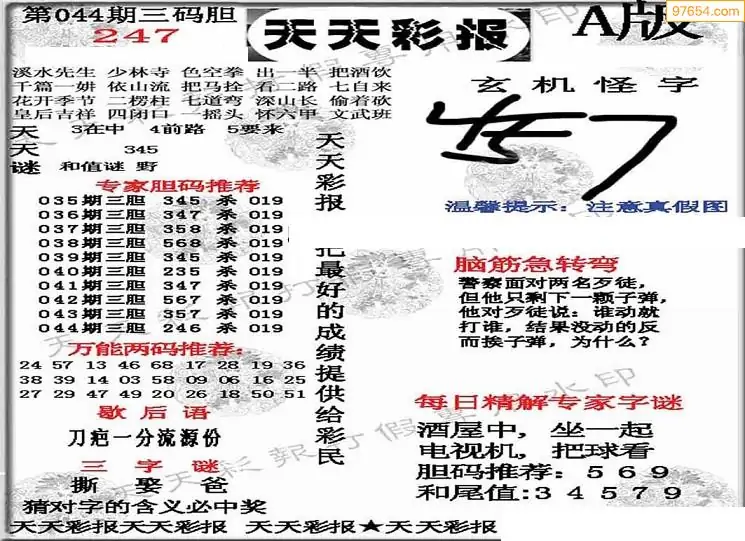 第044期三码胆
247
天天彩报
A版
97654.com
溪水先生 少林寺 色空拳 出一半 把酒饮
千篇一妍 依山流 把马拴 看二路 七自来
花开季节 二楞柱 七道弯 深山长 偷着砍
皇后吉祥 四闭口 一摇头 怀六甲 文武班
天 3在中 4前路 5要来
天 345
谜 和值谜 野
专家胆码推荐
035期三胆 345 杀 019
036期三胆 347 杀 019
037期三胆 358 杀 019
038期三胆 568 杀 019
039期三胆 345 杀 019
040期三胆 235 杀 019
041期三胆 347 杀 019
042期三胆 567 杀 019
043期三胆 357 杀 019
044期三胆 246 杀 019
万能两码推荐:
24 57 13 46 68 17 28 19 36
38 39 14 03 58 09 06 16 25
27 29 47 49 20 26 18 50 51
歇后语
刀疤一分流源份
三字谜
撕 娶 爸
猜对字的含义必中奖
天天彩报
把最好的成绩提供给彩民
玄机怪字
457
温馨提示:注意真假图
脑筋急转弯
警察面对两名歹徒,
但他只剩下一颗子弹,
他对歹徒说:谁动就
打谁,结果没动的反
而挨子弹,为什么?
每日精解专家字谜
酒屋中,坐一起
电视机,把球看
胆码推荐:569
和尾值:34579
天天彩报天天彩报 天天彩报★天天彩报